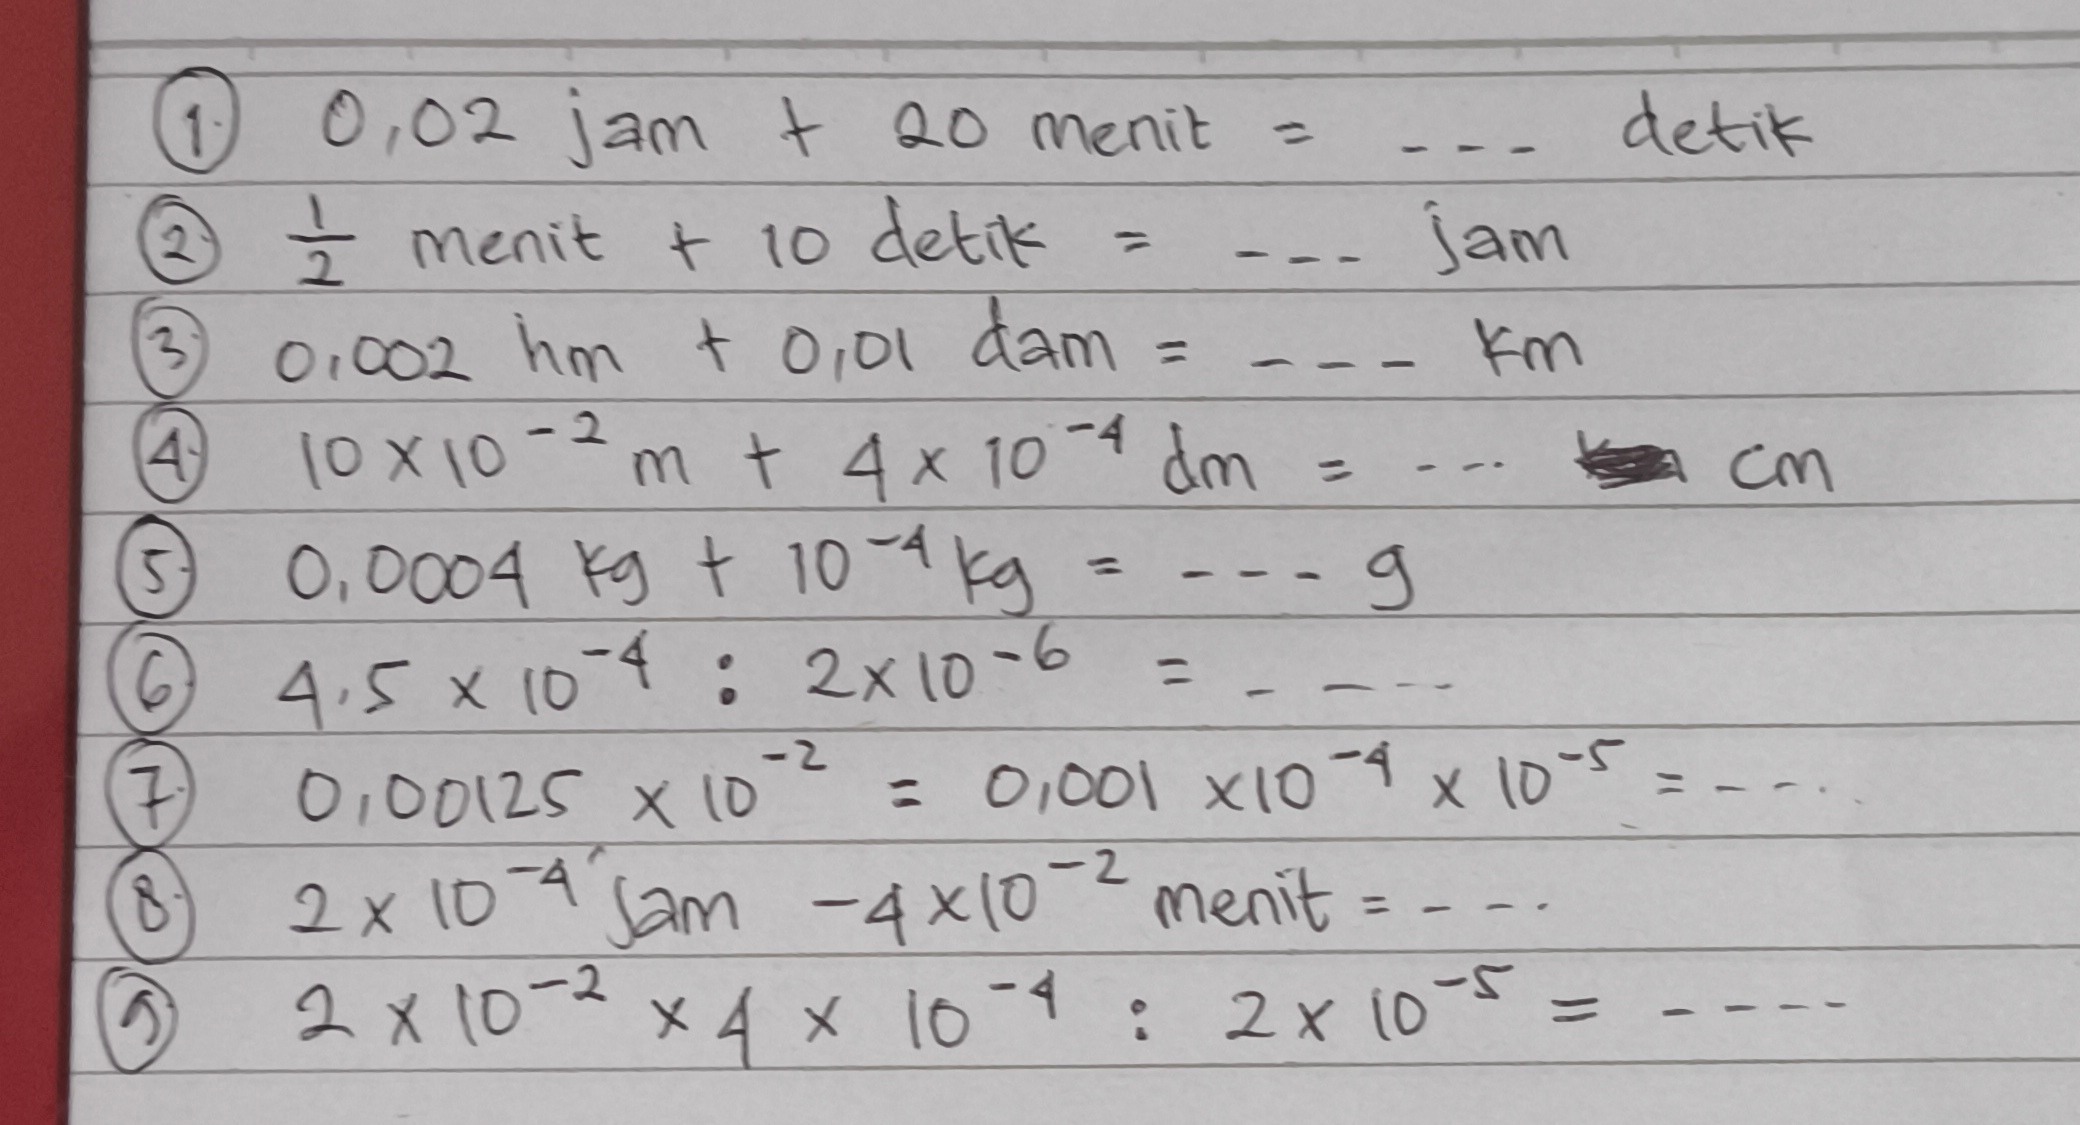 1. 0,02 jam + 20 menit = --- detik
2. 1/2 menit + 10 detik = --- jam
3. 0,002 hm + 0,01 dam = --- km
4. 10 x 10⁻² m + 4 x 10⁻⁴ dm = --- cm
5. 0,0004 kg + 10⁻⁴ kg = --- g
6. 4.5 x 10⁻⁴ : 2 x 10⁻⁶ = ----
7. 0,00125 x 10⁻² = 0,001 x 10⁻⁴ x 10⁻⁵ = ----
8. 2 x 10⁻⁴ jam - 4 x 10⁻² menit = ---
9. 2 x 10⁻² x 4 x 10⁻⁴ : 2 x 10⁻⁵ = ----